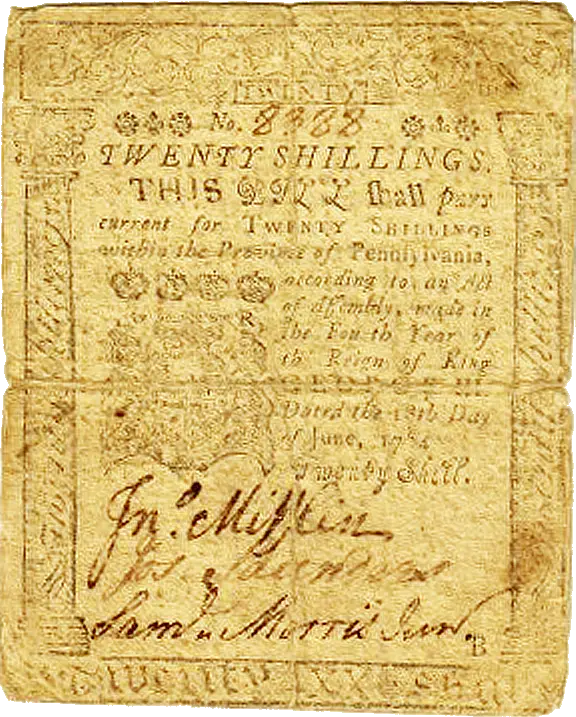 TWENTY
No. 8388
TWENTY SHILLINGS.
THIS BILL shall pass
current for TWENTY SHILLINGS
within the Province of Pennsylvania,
according to an Act
of Assembly, made in
R
the Fourth Year of
th Reign of King
GEORGE III.
Dated the 18th Day
of June, 1764
Twenty Shill.
Jno. Mifflin
Jos Saunders
Saml. Morris Junr.
B